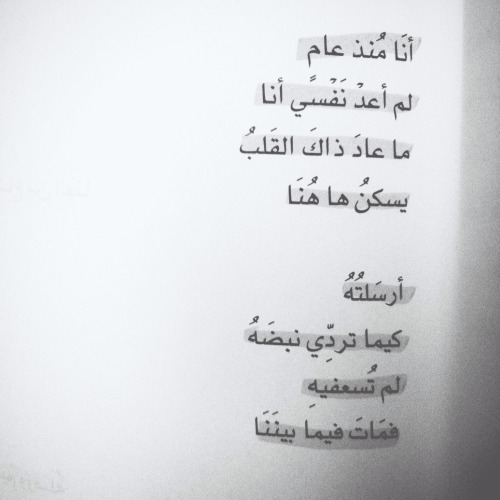 أنَا مُنذ عام
لم أعدْ نَفْسًي أنا
ما عادَ ذاكَ القَلبُ
يسكنُ ها هُنَا
أرسَلتُهُ
كيما تردِّي نبضَهُ
لم تُسعفيهِ
فمَاتَ فيمَا بينَنَا